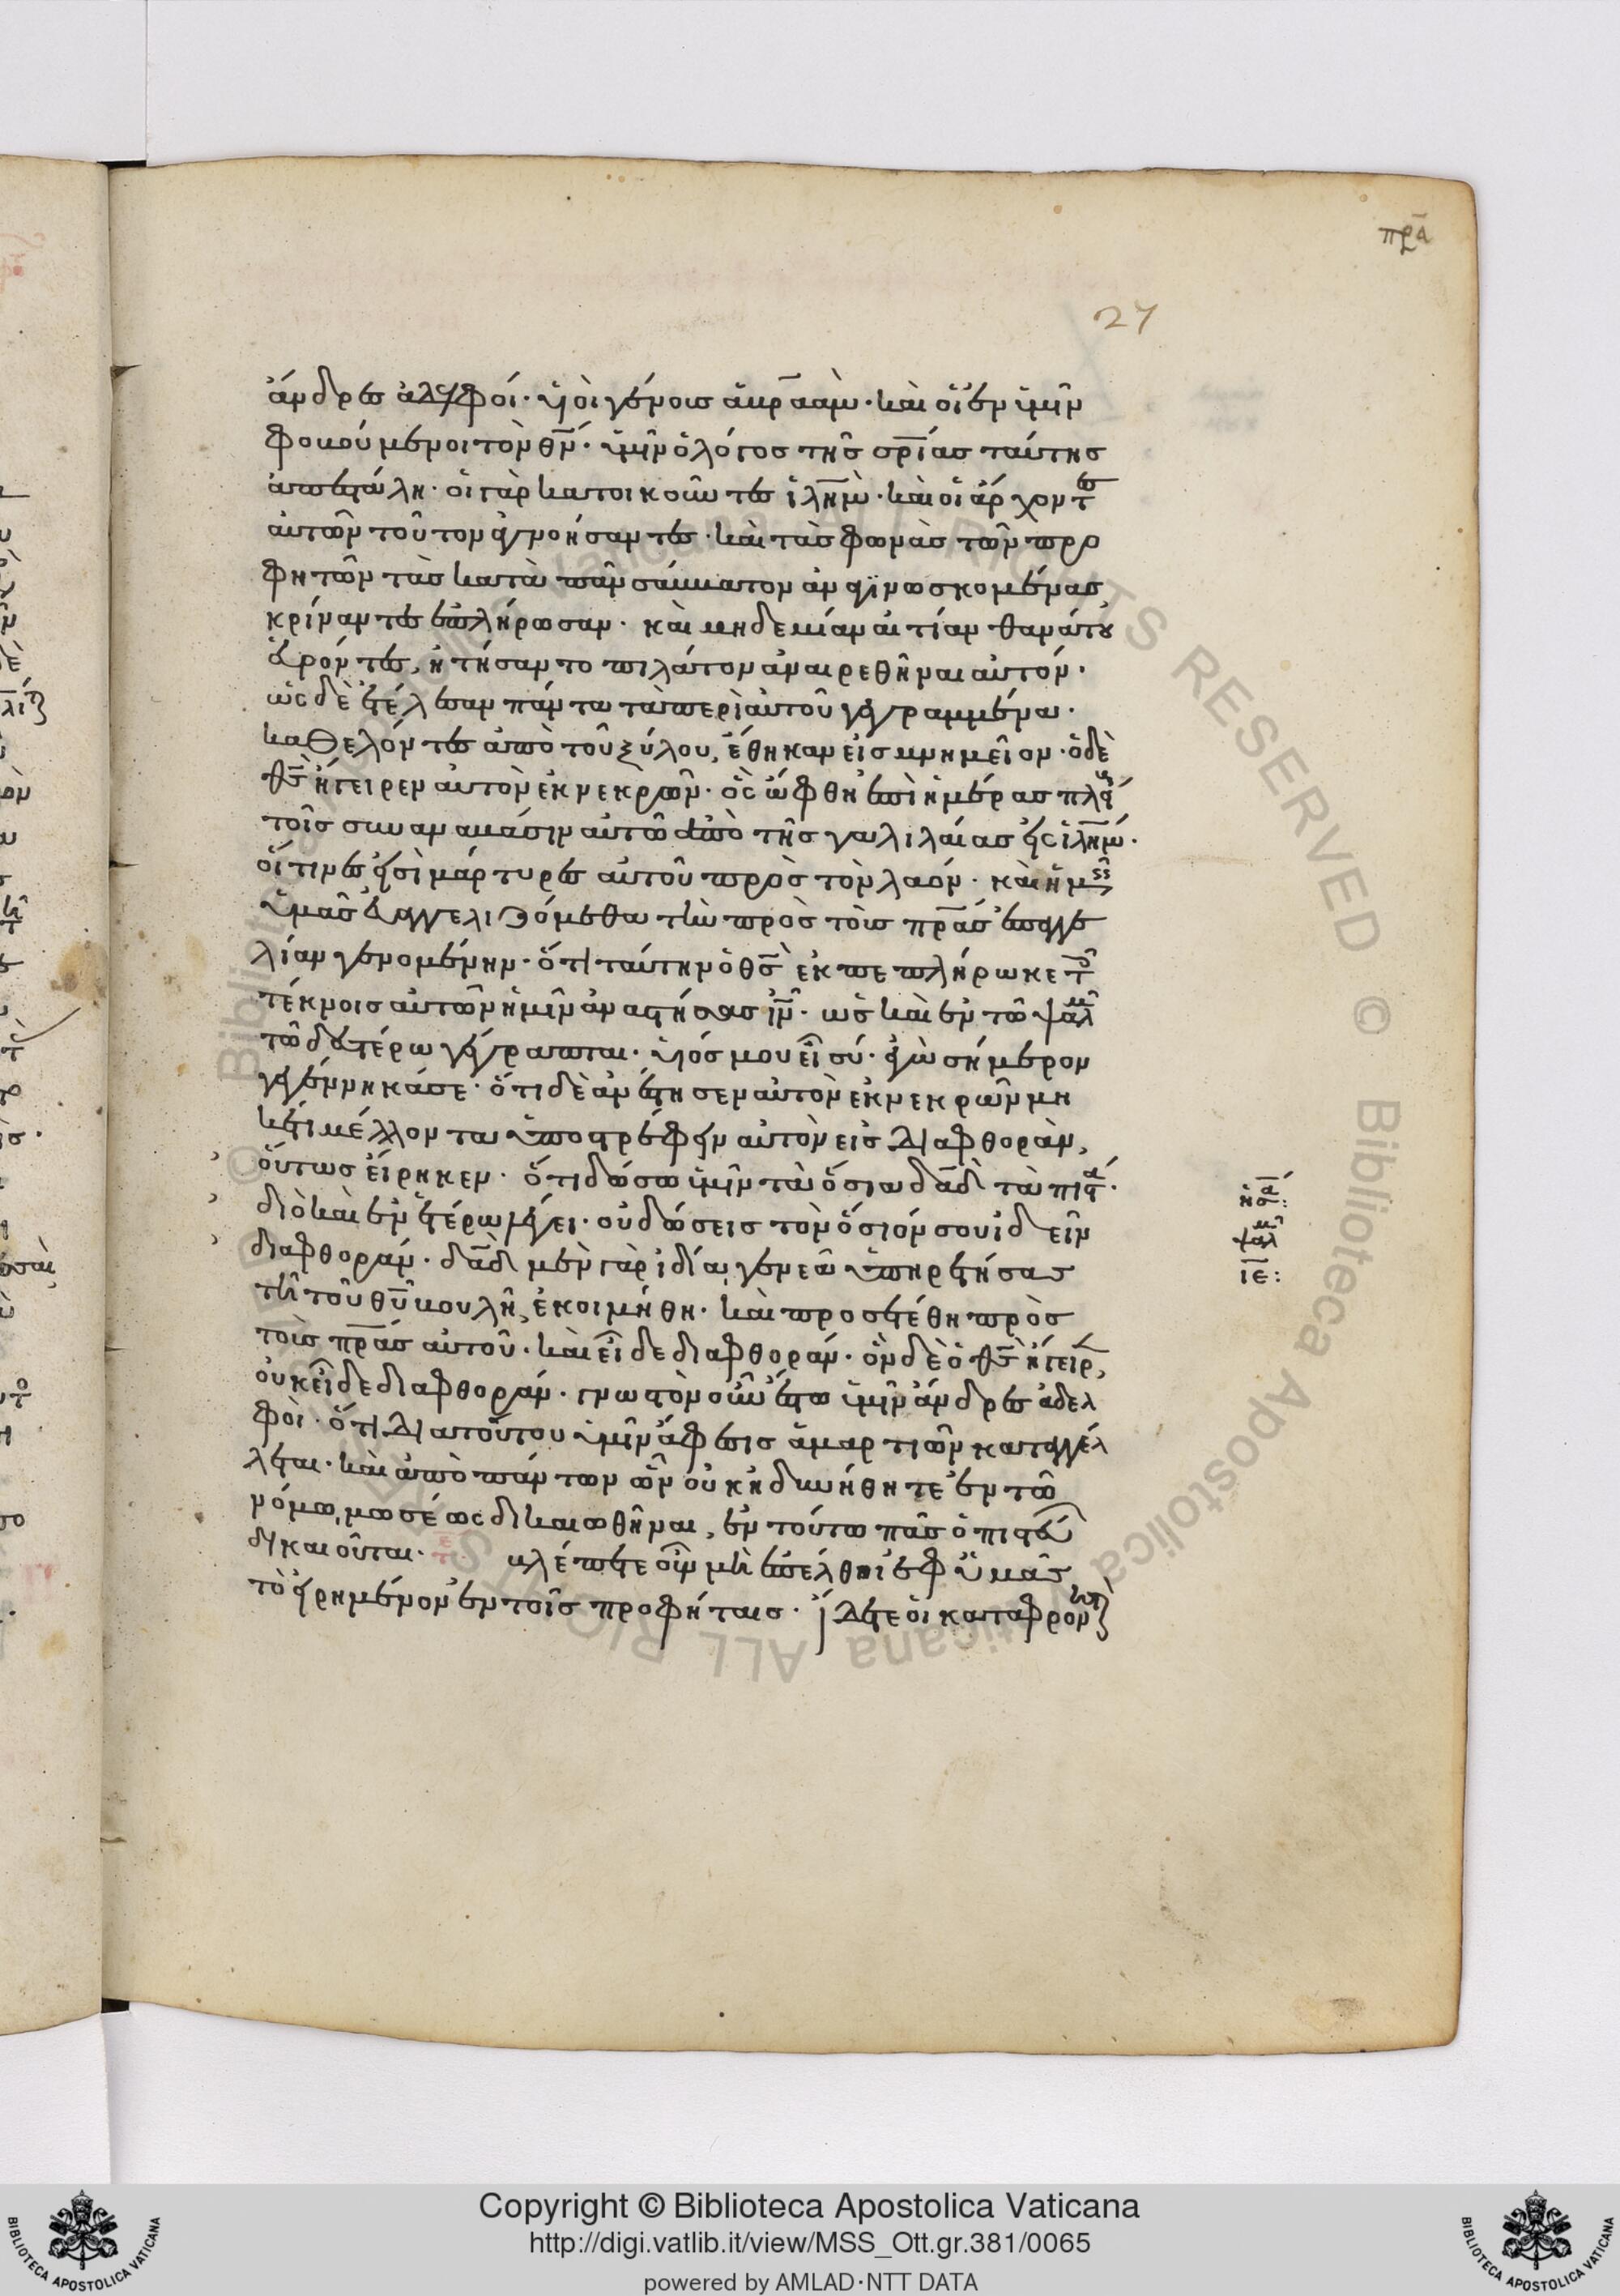 πρᾱ
27
ἄνδρες ἀδελφοί· υἱοὶ γένους ἀβρ̄αάμ· καὶ οἱ ἐν ὑμῖν
φοβούμενοι τὸν θ̄ν· ὑμῖν ὁ λόγος τῆς σρ̄ίας ταύτης
ἀπεστάλη· οἱ γὰρ κατοικοῦντες ἱλ̄ημ· καὶ οἱ ἄρχοντες
αὐτῶν τοῦτον ἀγνοήσαντες· καὶ τὰς φωνὰς τῶν προ
φητῶν τὰς κατὰ πᾶν σάββατον ἀναγινωσκομένας,
κρίναντες ἐπλήρωσαν· καὶ μηδεμίαν αἰτίαν θανάτου
εὑρόντες, ἠτήσαντο πιλάτον ἀναιρεθῆναι αὐτόν·
ὡς δὲ ἐτέλεσαν πάντα τὰ περὶ αὐτοῦ γεγραμμένα·
καθελόντες ἀπὸ τοῦ ξύλου, ἔθηκαν εἰς μνημεῖον· ὁ δὲ
θ̄ς ἤγειρεν αὐτὸν ἐκ νεκρῶν· ὃς ὤφθη ἐπὶ ἡμέρας πλεί
τοῖς συναναβᾶσιν αὐτῶ ἀπὸ τῆς γαλιλαίας εἰς ἱλ̄ημ·
οἵτινες εἰσὶ μάρτυρες αὐτοῦ πρὸς τὸν λαόν· καὶ ἡμεῖς
ὑμᾶς εὐαγγελιζόμεθα τὴν πρὸς τοὺς πρ̄ας ἐπαγγε
λίαν γενομένην· ὅτι ταύτην ὁ θ̄ς ἐκπεπλήρωκε τοῖς
τέκνοις αὐτῶν ἡμῖν ἀναστήσας ἰ̄ν· ὡς καὶ ἐν τῶ ψαλμ
τῶ δευτέρω γέγραπται· υἱός μου εἶ σύ· ἐγὼ σήμερον
γεγέννηκά σε· ὅτι δὲ ἀνέστησεν αὐτὸν ἐκ νεκρῶν μη
κέτι μέλλοντα ὑποστρέφειν αὐτὸν εἰς διαφθοράν,
οὕτως εἴρηκεν· ὅτι δώσω ὑμῖν τὰ ὅσια δᾱδ τὰ πιστά·
διὸ καὶ ἐν ἑτέρω λέγει· οὐ δώσεις τὸν ὅσιόν σου ἰδεῖν
διαφθοράν· δᾱδ μὲν γὰρ ἰδία γενεᾶ ὑπηρετήσας
τῆ τοῦ θ̄υ βουλῆ, ἐκοιμήθη· καὶ προσετέθη πρὸς
τοὺς πρ̄ας αὐτοῦ· καὶ εἶδε διαφθοράν· ὃν δὲ ὁ θ̄ς ἤγειρ,
οὐκ εἶδε διαφθοράν· γνωστὸν οὖν ἔστω ὑμῖν ἄνδρες ἀδελ
φοὶ· ὅτι διὰ τούτου ὑμῖν ἄφεσις ἁμαρτιῶν καταγγέλ
λεται· καὶ ἀπὸ πάντων ὧν οὐκ ἠδυνήθητε ἐν τῶ
νόμω μωσέως δικαιωθῆναι, ἐν τούτω πᾶς ὁ πιστεύων
δικαιοῦται· βλέπετε οὖν μὴ ἐπέλθη ἐφ ὑμᾶς
τὸ εἰρημένον ἐν τοῖς προφήταις· ἴδετε οἱ καταφρονηταί
ἡσα:
ψαλμ
ιε:
Copyright © Biblioteca Apostolica Vaticana
http://digi.vatlib.it/view/MSS_Ott.gr.381/0065
powered by AMLAD·NTT DATA
BIBLIOTECA APOSTOLICA VATICANA
BIBLIOTECA APOSTOLICA VATICANA
© Biblioteca Apostolica Vaticana ALL RIGHTS RESERVED